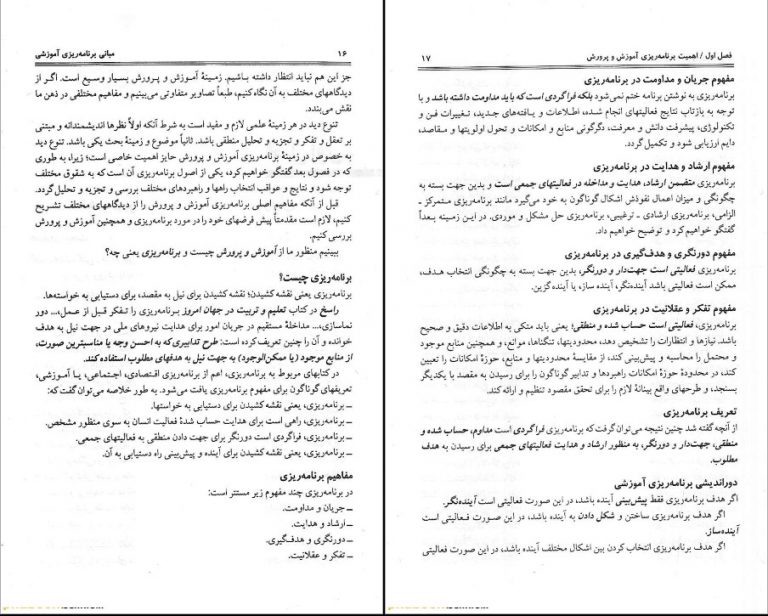 ۱۶ مبانی برنامه‌ریزی آموزشی
جز این هم نباید انتظار داشته باشیم. زمینهٔ آموزش و پرورش بسیار وسیع است. اگر از
دیدگاههای مختلف به آن نگاه کنیم، طبعاً تصاویر متفاوتی می‌بینیم و مفاهیم مختلفی در ذهن ما
نقش می‌بندد.
تنوع دید در هر زمینهٔ علمی لازم و مفید است به شرط آنکه اولاً نظرها اندیشمندانه و مبتنی
بر تعقل و تفکر و تجزیه و تحلیل منطقی باشد. ثانیاً موضوع و زمینهٔ بحث یکی باشد. تنوع دید
به خصوص در زمینهٔ برنامه‌ریزی آموزش و پرورش حایز اهمیت خاصی است؛ زیرا، به طوری که
در فصول بعد گفتگو خواهیم کرد، یکی از اصول برنامه‌ریزی آن است که به شقوق مختلف
توجه شود و نتایج و عواقب انتخاب راهها و راهبردهای مختلف بررسی و تجزیه و تحلیل گردد.
قبل از آنکه مفاهیم اصلی برنامه‌ریزی آموزش و پرورش را از دیدگاههای مختلف تشریح
کنیم، لازم است مقدمتاً پیش فرضهای خود را در مورد برنامه‌ریزی و همچنین آموزش و پرورش
بررسی کنیم.
ببینیم منظور ما از آموزش و پرورش چیست و برنامه‌ریزی یعنی چه؟
برنامه‌ریزی چیست؟
برنامه‌ریزی یعنی نقشه کشیدن؛ نقشه کشیدن برای نیل به مقصد، برای دستیابی به خواسته‌ها.
راسخ در کتاب تعلیم و تربیت در جهان امروز برنامه‌ریزی را تفکر قبل از عمل،... دور
نماسازی،... مداخلهٔ مستقیم در جریان امور برای هدایت نیروهای ملی در جهت نیل به هدف
خوانده و آن را چنین تعریف کرده است: طرح تدابیری که به احسن وجه یا مناسبترین صورت،
از منابع موجود (یا ممکن‌الوجود) به جهت نیل به هدفهای مطلوب استفاده کند.
در کتابهای مربوط به برنامه‌ریزی، اعم از برنامه‌ریزی اقتصادی، اجتماعی، یا آموزشی،
تعریفهای گوناگون برای مفهوم برنامه‌ریزی یافت می‌شود. به طور خلاصه می‌توان گفت که:
ــ برنامه‌ریزی، یعنی نقشه کشیدن برای دستیابی به خواستها.
ــ برنامه‌ریزی، راهی است برای هدایت حساب شدهٔ فعالیت انسان به سوی منظور مشخص.
ــ برنامه‌ریزی، فراگردی است دورنگر برای جهت دادن منطقی به فعالیتهای جمعی.
ــ برنامه‌ریزی، یعنی نقشه کشیدن برای آینده و پیش‌بینی راه دستیابی به آن.
مفاهیم برنامه‌ریزی
در برنامه‌ریزی چند مفهوم زیر مستتر است:
ــ جریان و مداومت.
ــ ارشاد و هدایت.
ــ دورنگری و هدف‌گیری.
ــ تفکر و عقلانیت.
فصل اول / اهمیت برنامه‌ریزی آموزش و پرورش ۱۷
مفهوم جریان و مداومت در برنامه‌ریزی
برنامه‌ریزی به نوشتن برنامه ختم نمی‌شود بلکه فراگردی است که باید مداومت داشته باشد و با
توجه به بازتاب نتایج فعالیتهای انجام شده، اطلاعات و یافته‌های جدید، تغییرات فن و
تکنولوژی، پیشرفت دانش و معرفت، دگرگونی منابع و امکانات و تحول اولویتها و مقاصد،
دایم ارزیابی شود و تکمیل گردد.
مفهوم ارشاد و هدایت در برنامه‌ریزی
برنامه‌ریزی متضمن ارشاد، هدایت و مداخله در فعالیتهای جمعی است و بدین جهت بسته به
چگونگی و میزان اعمال نفوذش اشکال گوناگون به خود می‌گیرد مانند برنامه‌ریزی متمرکز ــ
الزامی، برنامه‌ریزی ارشادی ــ ترغیبی، برنامه‌ریزی حل مشکل و موردی. در این زمینه بعداً
گفتگو خواهیم کرد و توضیح خواهیم داد.
مفهوم دورنگری و هدف‌گیری در برنامه‌ریزی
برنامه‌ریزی فعالیتی است جهت‌دار و دورنگر، بدین جهت بسته به چگونگی انتخاب هدف،
ممکن است فعالیتی باشد آینده‌نگر، آینده ساز، یا آینده‌گزین.
مفهوم تفکر و عقلانیت در برنامه‌ریزی
برنامه‌ریزی، فعالیتی است حساب شده و منطقی؛ یعنی باید متکی به اطلاعات دقیق و صحیح
باشد. نیازها و انتظارات را تشخیص دهد، محدودیتها، تنگناها، موانع، و همچنین منابع موجود
و محتمل را محاسبه و پیش‌بینی کند، از مقایسهٔ محدودیتها و منابع، حوزهٔ امکانات را تعیین
کند، در محدودهٔ حوزهٔ امکانات راهبردها و تدابیر گوناگون را برای رسیدن به مقصد با یکدیگر
بسنجد، و طرحهای واقع بینانهٔ لازم را برای تحقق مقصود تنظیم و ارائه کند.
تعریف برنامه‌ریزی
از آنچه گفته شد چنین نتیجه می‌توان گرفت که برنامه‌ریزی فراگردی است مداوم، حساب شده و
منطقی، جهت‌دار و دورنگر، به منظور ارشاد و هدایت فعالیتهای جمعی برای رسیدن به هدف
مطلوب.
دوراندیشی برنامه‌ریزی آموزشی
اگر هدف برنامه‌ریزی فقط پیش‌بینی آینده باشد، در این صورت فعالیتی است آینده‌نگر.
اگر هدف برنامه‌ریزی ساختن و شکل دادن به آینده باشد، در این صورت فعالیتی است
آینده‌ساز.
اگر هدف برنامه‌ریزی انتخاب کردن بین اشکال مختلف آینده باشد، در این صورت فعالیتی